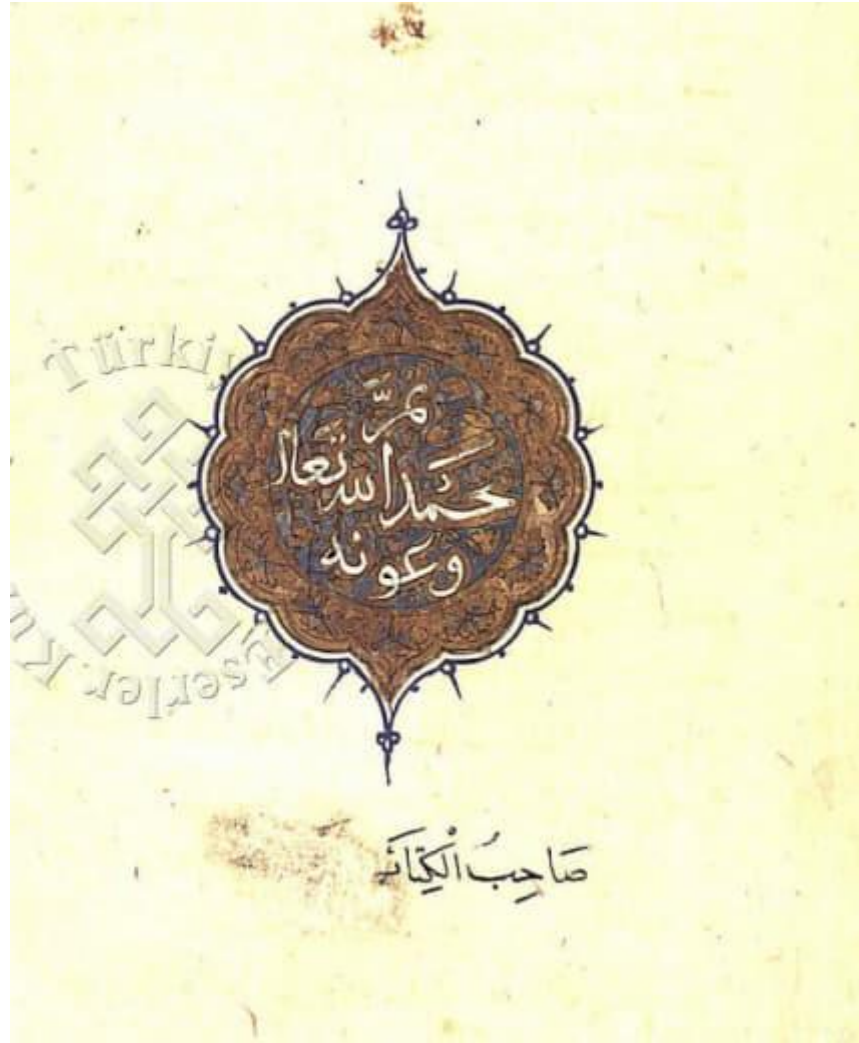 تمَّ
بحمد الله تعالى
وعونه
صَاحِبُ الْكِتَابِ
Türkiy
Eserler Ku